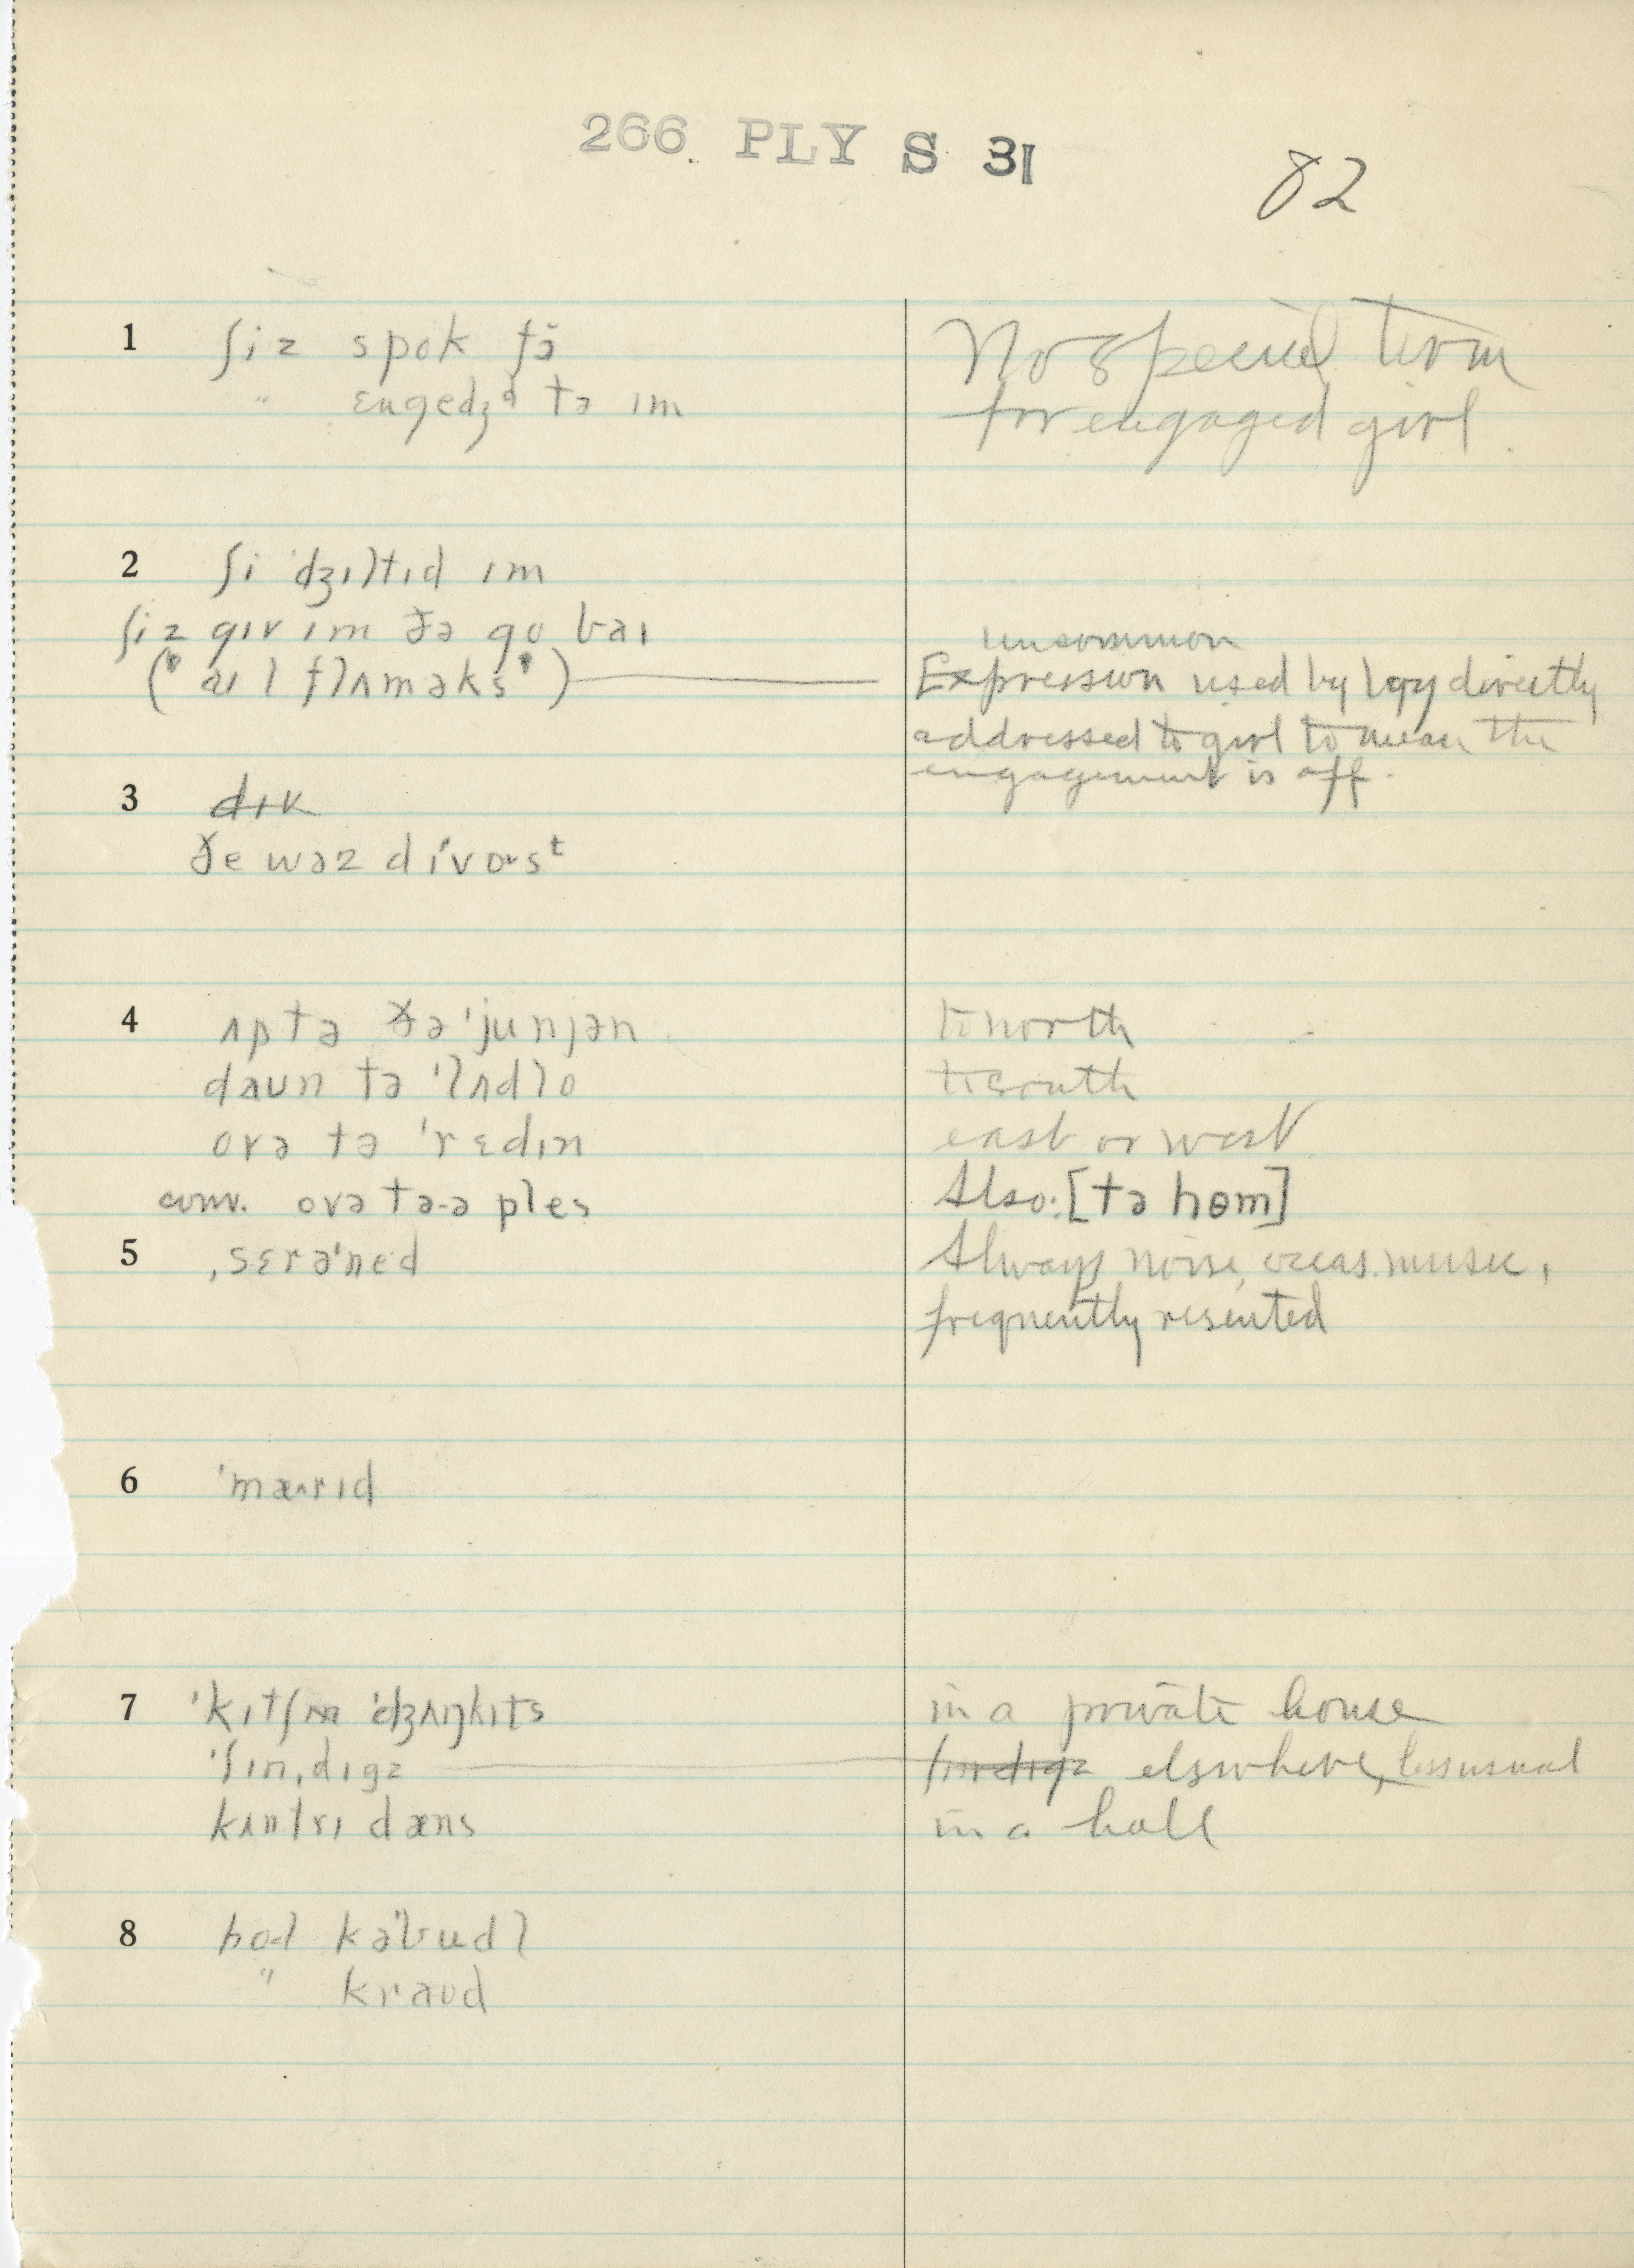 266 PLY S 31
82
1 ʃiz spok fɔ No special term
" ɛngedʒᵈ tə ɪm for engaged girl
2 ʃi ˈdʒɪltɪd ɪm
ʃiz gɪv ɪm ðə gʊ baɪ uncommon
("aɪ l flʌməks") Expression used by boy directly
addressed to girl to mean the
engagement is off.
3 dɪk
ðe wəz dɪˈvɒsᵗ
4 ʌp tə ðə ˈjunjən to north
daun tə ˈlʌdlo to south
ovə tə ˈrɛdɪn east or west
conv. ovə tə-ə ples Also: [tə hɵm]
5 ˌsɛrəˈned Always noise, occas. music,
frequently resented
6 ˈmæ˄rɪd
7 ˈkɪtʃɪn ˈdʒʌŋkɪts in a private house
ˈʃɪnˌdɪgz ʃɪndɪgz elsewhere, less usual
kʌntrɪ dæns in a hall
8 hol kəˈbudl
" kraud